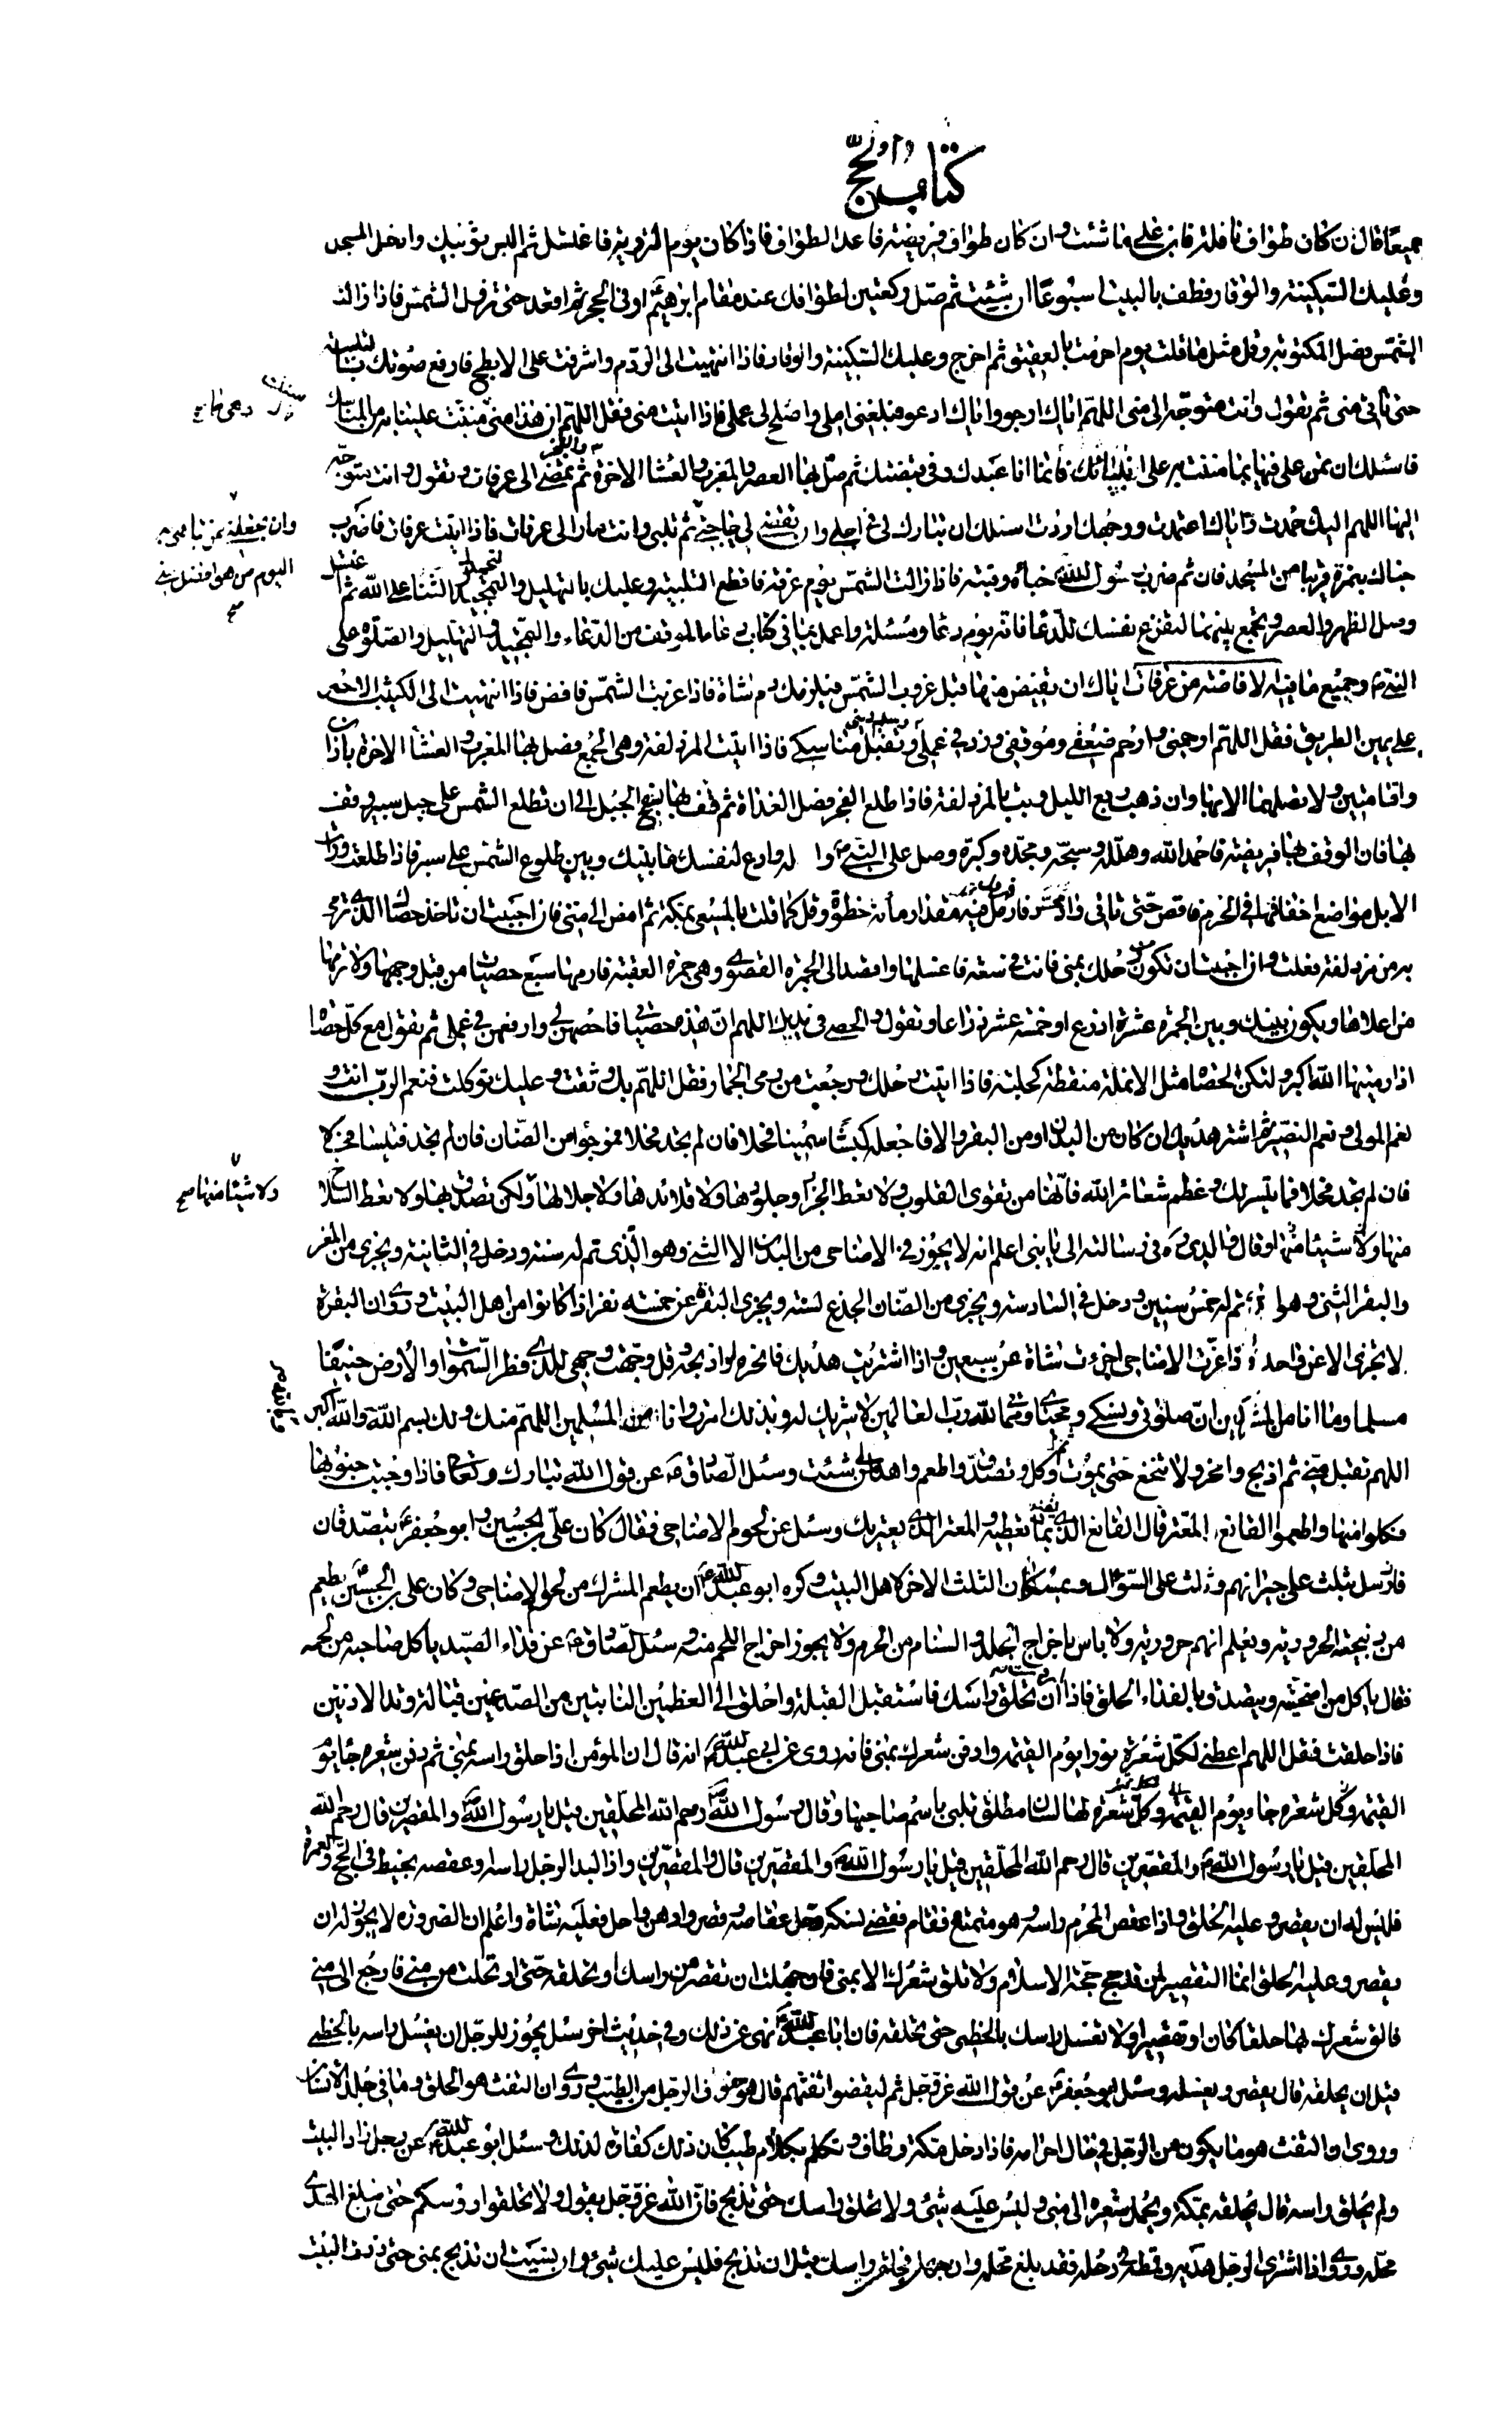 كتاب الحج
جميعا قال ان كان طواف نافلة فابن على ما شئت وان كان طواف فريضة فاعد الطواف فاذا كان يوم التروية فاغتسل ثم البس ثوبيك وادخل المسجد
وعليك السكينة والوقار فطف بالبيت اسبوعا ان شئت ثم صل ركعتين لطوافك عند مقام ابرهيم او في الحجر ثم اقعد حتى تزول الشمس فاذا زالت
الشمس فصل المكتوبة وقل مثل ما قلت يوم احرمت بالعقيق ثم اخرج وعليك السكينة والوقار فاذا انتهيت الى الردم واشرفت على الابطح فارفع صوتك بالتلبية
حتى تأتي منى ثم تقول وانت متوجه الى منى اللهم اياك ارجو واياك ادعو فبلغني املي واصلح لي عملي فاذا اتيت منى فقل اللهم ان هذه منى مننت علينا به من المناسك
فاسئلك ان تمن على فيها بما مننت به على انبيائك فانما انا عبدك وفي قبضتك ثم صل بها العصر والمغرب والعشا الاخرة والفجر ثم تمضي الى عرفات وتقول وانت متوجه
اليها اللهم اليك صمدت واياك اعتمدت ووجهك اردت اسئلك ان تبارك لي في اجلي وان تقضي لي حاجتي ثم تلبي وانت مار الى عرفات فاذا اتيت عرفات فاضرب
وان تجعلني ممن تباهي به
اليوم من هو افضل مني
صح
خباك بنمرة قريبا من المسجد فان ثم ضرب رسول الله خباه وقبته فاذا زالت الشمس يوم عرفة فاقطع التلبية وعليك بالتهليل والتحميد والثناء على الله ثم اغتسل
وصل الظهر والعصر وتجمع بينهما لتفرغ نفسك للدعا فانه يوم دعا ومسئلة واعمل بما في كتاب دعاء الموقف من الدعاء والتحميد والتهليل والصلوة على
النبي وجميع ما فيه الافاضة من عرفات اياك ان تفيض منها قبل غروب الشمس فيلزمك دم شاة فاذا غربت الشمس فافض فاذا انتهيت الى الكثيب الاحمر
على يمين الطريق فقل اللهم ارحمني وارحم ضعفي وموقفي وزد في عملي وتقبل مناسكي فاذا اتيت المزدلفة وهي الجمع فصل بها المغرب والعشا الاخرة باذان
واقامتين ولا تصلهما الا بها وان ذهب ربع الليل وبت بالمزدلفة فاذا طلع الفجر فصل الغداة ثم قف بها بسفح الجبل الى ان تطلع الشمس على جبل ثبير وقف
بها فان الوقوف بها فريضة فاحمد الله وهلله وسبحه ومجده وكبره وصل على النبي واله وادع لنفسك ما بينك وبين طلوع الشمس على ثبير فاذا طلعت ورات
الابل مواضع اخفافها في الحرم فافض حتى تاتي وادي محسر فارمل فيه مقدار مأة خطوة وقل كما قلت بالمسعى بمكة ثم امض الى منى فان احببت ان تاخذ حصاك الذي ترمي
به من مزدلفة فعلت وان احببت ان تكون من رحلك بمنى فانت في سعة فاغسلها واقصد الى الجمرة القصوى وهي جمرة العقبة فارمها سبع حصيات من قبل وجهها ولا ترمها
من اعلاها ويكون بينك وبين الجمرة عشرة اذرع او خمسة عشر ذراعا وتقول والحصى في يديك اللهم ان هذه حصياتي فاحصهن لي وارفعهن في عملي ثم تقول مع كل حصاة
اذا رميتها الله اكبر ولتكن الحصا مثل الانملة منقطة كحلية فاذا اتيت رحلك ورجعت من رمي الجمار فقل اللهم بك وثقت وعليك توكلت فنعم الرب انت و
نعم المولى ونعم النصير ثم اشتر هديك ان كان من البدن او من البقر والا فاجعله كبشا سمينا فحلا فان لم تجد فحلا فموجوءا من الضان فان لم تجد فتيسا فحلا
فان لم تجد فحلا فما تيسر لك وعظم شعائر الله فانها من تقوى القلوب ولا تعط الجزار جلودها ولا قلائدها ولا جلالها ولكن تصدق بها ولا تعط السلاخ
ولا شيئا منها صح
منها شيئا وقال والدي ره في رسالته الي يا بني اعلم انه لا يجوز في الاضاحي من البدن الا الثني وهو الذي تم له سنة ودخل في الثانية ويجزي من المعز
والبقر الثني وهو الذي تم له خمس سنين ودخل في السادسة ويجزي من الضان الجذع لسنة ويجزي البقرة عن خمسة نفر اذا كانوا من اهل البيت وروي ان البقرة
لا تجزى الا عن واحد واذا عزت الاضاحي اجزءت شاة عن سبعين واذا اشتريت هديك فانحره او اذبحه وقل وجهت وجهي للذي فطر السموات والارض حنيفا
مسلما وما انا من المشركين ان صلوتي ونسكي ومحياي ومماتي لله رب العالمين لا شريك له وبذلك امرت وانا من المسلمين اللهم منك ولك بسم الله والله اكبر
اللهم تقبل مني ثم اذبح وانحر ولا تنخع حتى يموت وكل وتصدق واطعم واهد الى من شئت وسئل الصادق ع عن قول الله تبارك وتعالى فاذا وجبت جنوبها
فكلوا منها واطعموا القانع والمعتر قال القانع الذي يقنع بما تعطيه والمعتر الذي يعتريك وسئل عن لحوم الاضاحي فقال كان علي بن الحسين وابو جعفر يتصدقان
من ذبيحته الحرورية ويعلم انهم حرورية ولا باس باخراج الجلد والسنام من الحرم ولا يجوز اخراج اللحم منه وسئل الصادق ع عن فداء الصيد ياكل صاحبه من لحمه
فقال ياكل من اضحيته ويتصدق بالفداء الحلق فاذا اردت ان تحلق راسك فاستقبل القبلة واحلق الى العظمين النابتين من الصدغين قبالة وتد الاذنين
فاذا حلقت فقل اللهم اعطني لكل شعرة نورا يوم القيمة وادفن شعرك بمنى فانه روى عن ابي عبد الله انه قال ان المؤمن اذا حلق راسه بمنى ثم دفن شعره جا يوم
القيمة وكل شعرة لها لسان مطلق تلبي باسم صاحبها وقال رسول الله رحم الله المحلقين قيل يا رسول الله والمقصرين قال رحم الله
المحلقين قيل يا رسول الله والمقصرين قال رحم الله المحلقين قيل يا رسول الله والمقصرين قال والمقصرين واذا لبد الرجل راسه او عقصه بخيط في الحج والعمرة
فليس له ان يقصر وعليه الحلق واذا عقص المحرم راسه وهو متمتع فقام فقضى نسكه وحل عقاصه وقصر وادهن واحل فعليه شاة واعلم ان الصرورة لا يجوز له ان
يقصر وعليه الحلق انما التقصير لمن قد حج حجة الاسلام ولا تلق شعرك الا بمنى فان جهلت ان تقصر من راسك او تحلقه حتى ارتحلت من منى فارجع الى منى
فالق شعرك بها حلقا كان او تقصيرا ولا تغسل راسك بالخطمى حتى تحلقه فان ابا عبد الله نهى عن ذلك وفي حديث اخر سئل يجوز للرجل ان يغسل راسه بالخطمي
قبل ان يحلقه قال يقصر ويغسله وسئل ابو جعفر عن قول الله عز وجل ثم ليقضوا تفثهم قال هو حفوف الرجل من الطيب وروي ان التفث هو الحلق وما في جلد الانسان
وروى ان التفث هو ما يكون من الرجل في حال احرامه فاذا دخل مكة وطاف وتكلم بكلام طيب كان ذلك كفارة لذلك وسئل ابو عبد الله عن رجل زار البيت
ولم يحلق راسه قال يحلقه بمكة ويحمل شعره الى منى وليس عليه شئ ولا تحلق راسك حتى تذبح فان الله عز وجل يقول ولا تحلقوا روسكم حتى يبلغ الهدي
محله وروي اذا اشترى الرجل هديه وقمطه في رحله فقد بلغ محله وان جهلت فحلقت راسك قبل ان تذبح فليس عليك شئ وان نسيت ان تذبح بمنى حتى زرت البيت